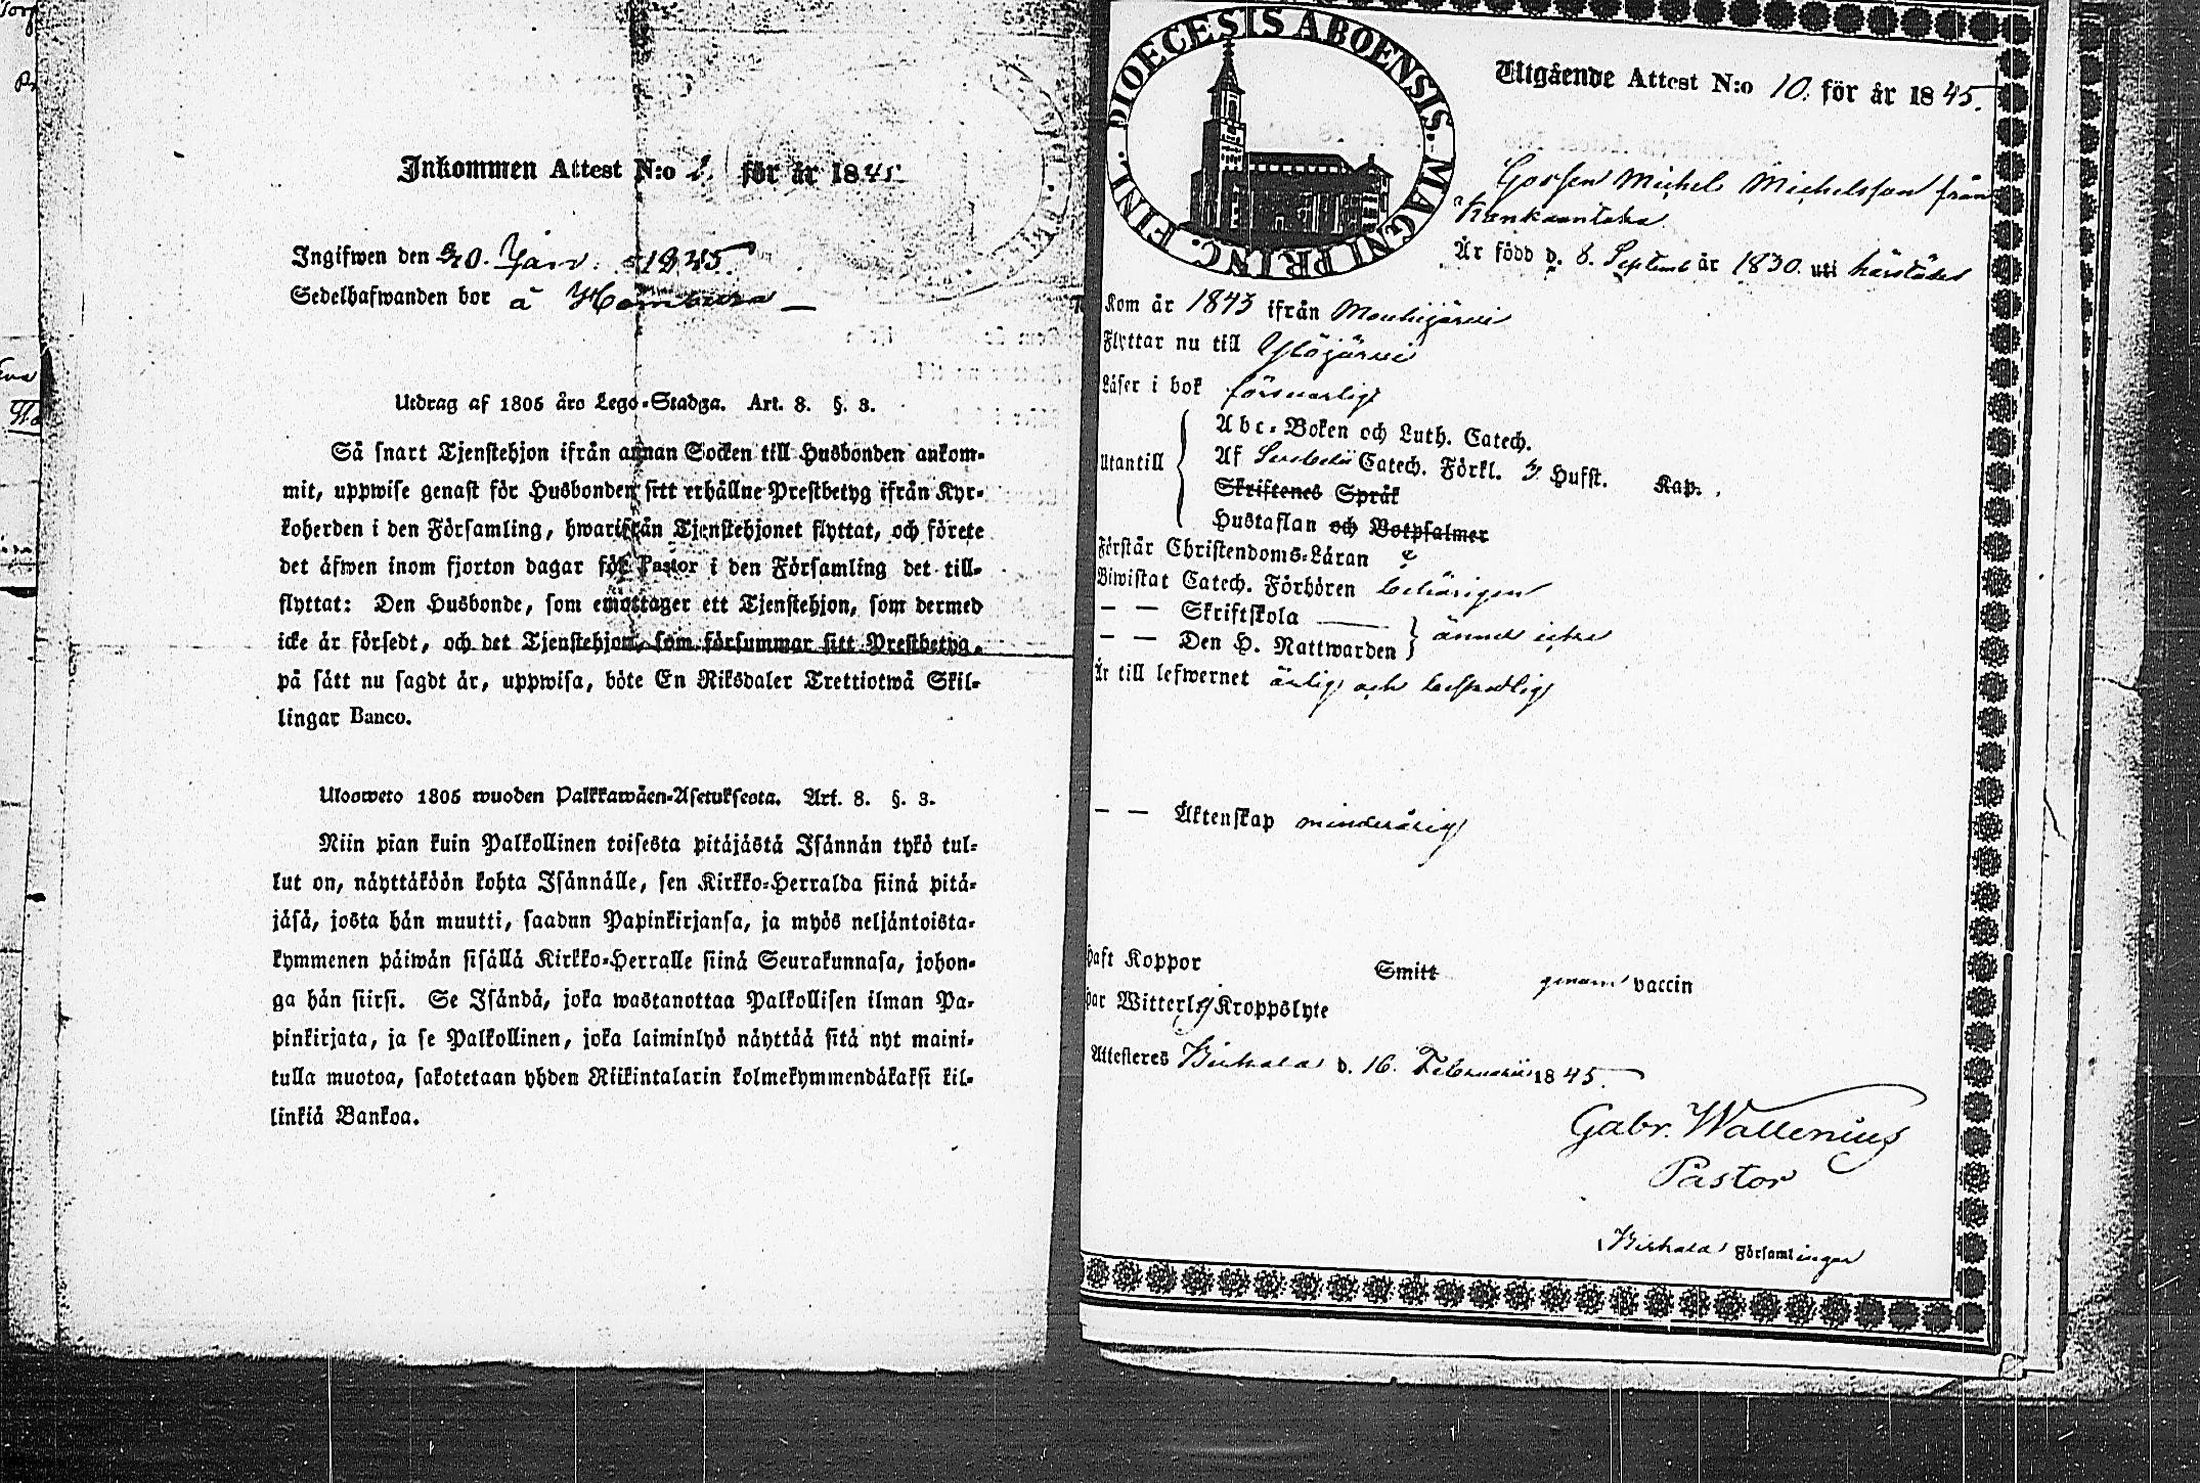 Inkommen Attest N:o 2. för år 1845
Ingifwen den 20. Jan. 1845.
Sedelhafwanden bor å
Utdrag af 1805 års Lego-Stadga. Art. 8. §. 3.
Så snart Tjenstehjon ifrån annan Socken till Husbonden ankom-
mit, uppwise genast för Husbonden sitt erhållne Prestbetyg ifrån Kyr-
koherden i den Församling, hwarifrån Tjenstehjonet flyttat, och förete
det äfwen inom fjorton dagar för Pastor i den Församling det till-
flyttat: Den Husbonde, som emottager ett Tjenstehjon, som dermed
icke är försedt, och det Tjenstehjon, som försummar sitt Prestbetyg,
på sätt nu sagdt är, uppwisa, böte En Riksdaler Trettiotwå Skil-
lingar Banco.
Uloosweto 1805 wuoden Palkkawäen-Asetuksesta. Art. 8. §. 3.
Niin pian kuin Palkollinen toisesta pitäjästä Isännän tykö tul-
lut on, näyttäköön kohta Isännälle, sen Kirkko-Herralda siinä pitä-
jäsä, josta hän muutti, saadun Papinkirjansa, ja myös neljäntoista-
kymmenen päiwän sisällä Kirkko-Herralle siinä Seurakunnasa, johon-
ga hän siirsi. Se Isändä, joka wastanottaa Palkollisen ilman Pa-
pinkirjata, ja se Palkollinen, joka laiminlyö näyttää sitä nyt maini-
tulla muotoa, sakotetaan yhden Riikintalarin kolmekymmendäkaksi kil-
linkiä Bankoa.
DIOECESIS ABOENSIS. MAGNI PRINC. FINL.
Utgående Attest N:o 10. för år 1845.
Gossen Michel Michelsson från
Kankaantaka
Är född d. 8. Septemb år 1830. uti härstädes
Kom år 1843 ifrån Mouhijärvi
Flyttar nu till Ylöjärvi
Läser i bok försvarligt
Utantill
Abc-Boken och Luth. Catech.
Af Catech. Förkl. Hufst. Kap.
Skriftenes Språk
Hustaflan och Botpsalmer
Förstår Christendoms-Läran
Biwistat Catech. Förhören behörigen
— — Skriftskola
— — Den H. Nattwarden ännu icke
Är till lefwernet ärlig och beskedlig
— — Äktenskap minderårig
Haft Koppor Smitt genom vaccin
Har Witterlig Kroppslyte
Attesteres Birkala d. 16. Februarii 1845.
Gabr. Wallenius
Pastor
Birkala Församlingar